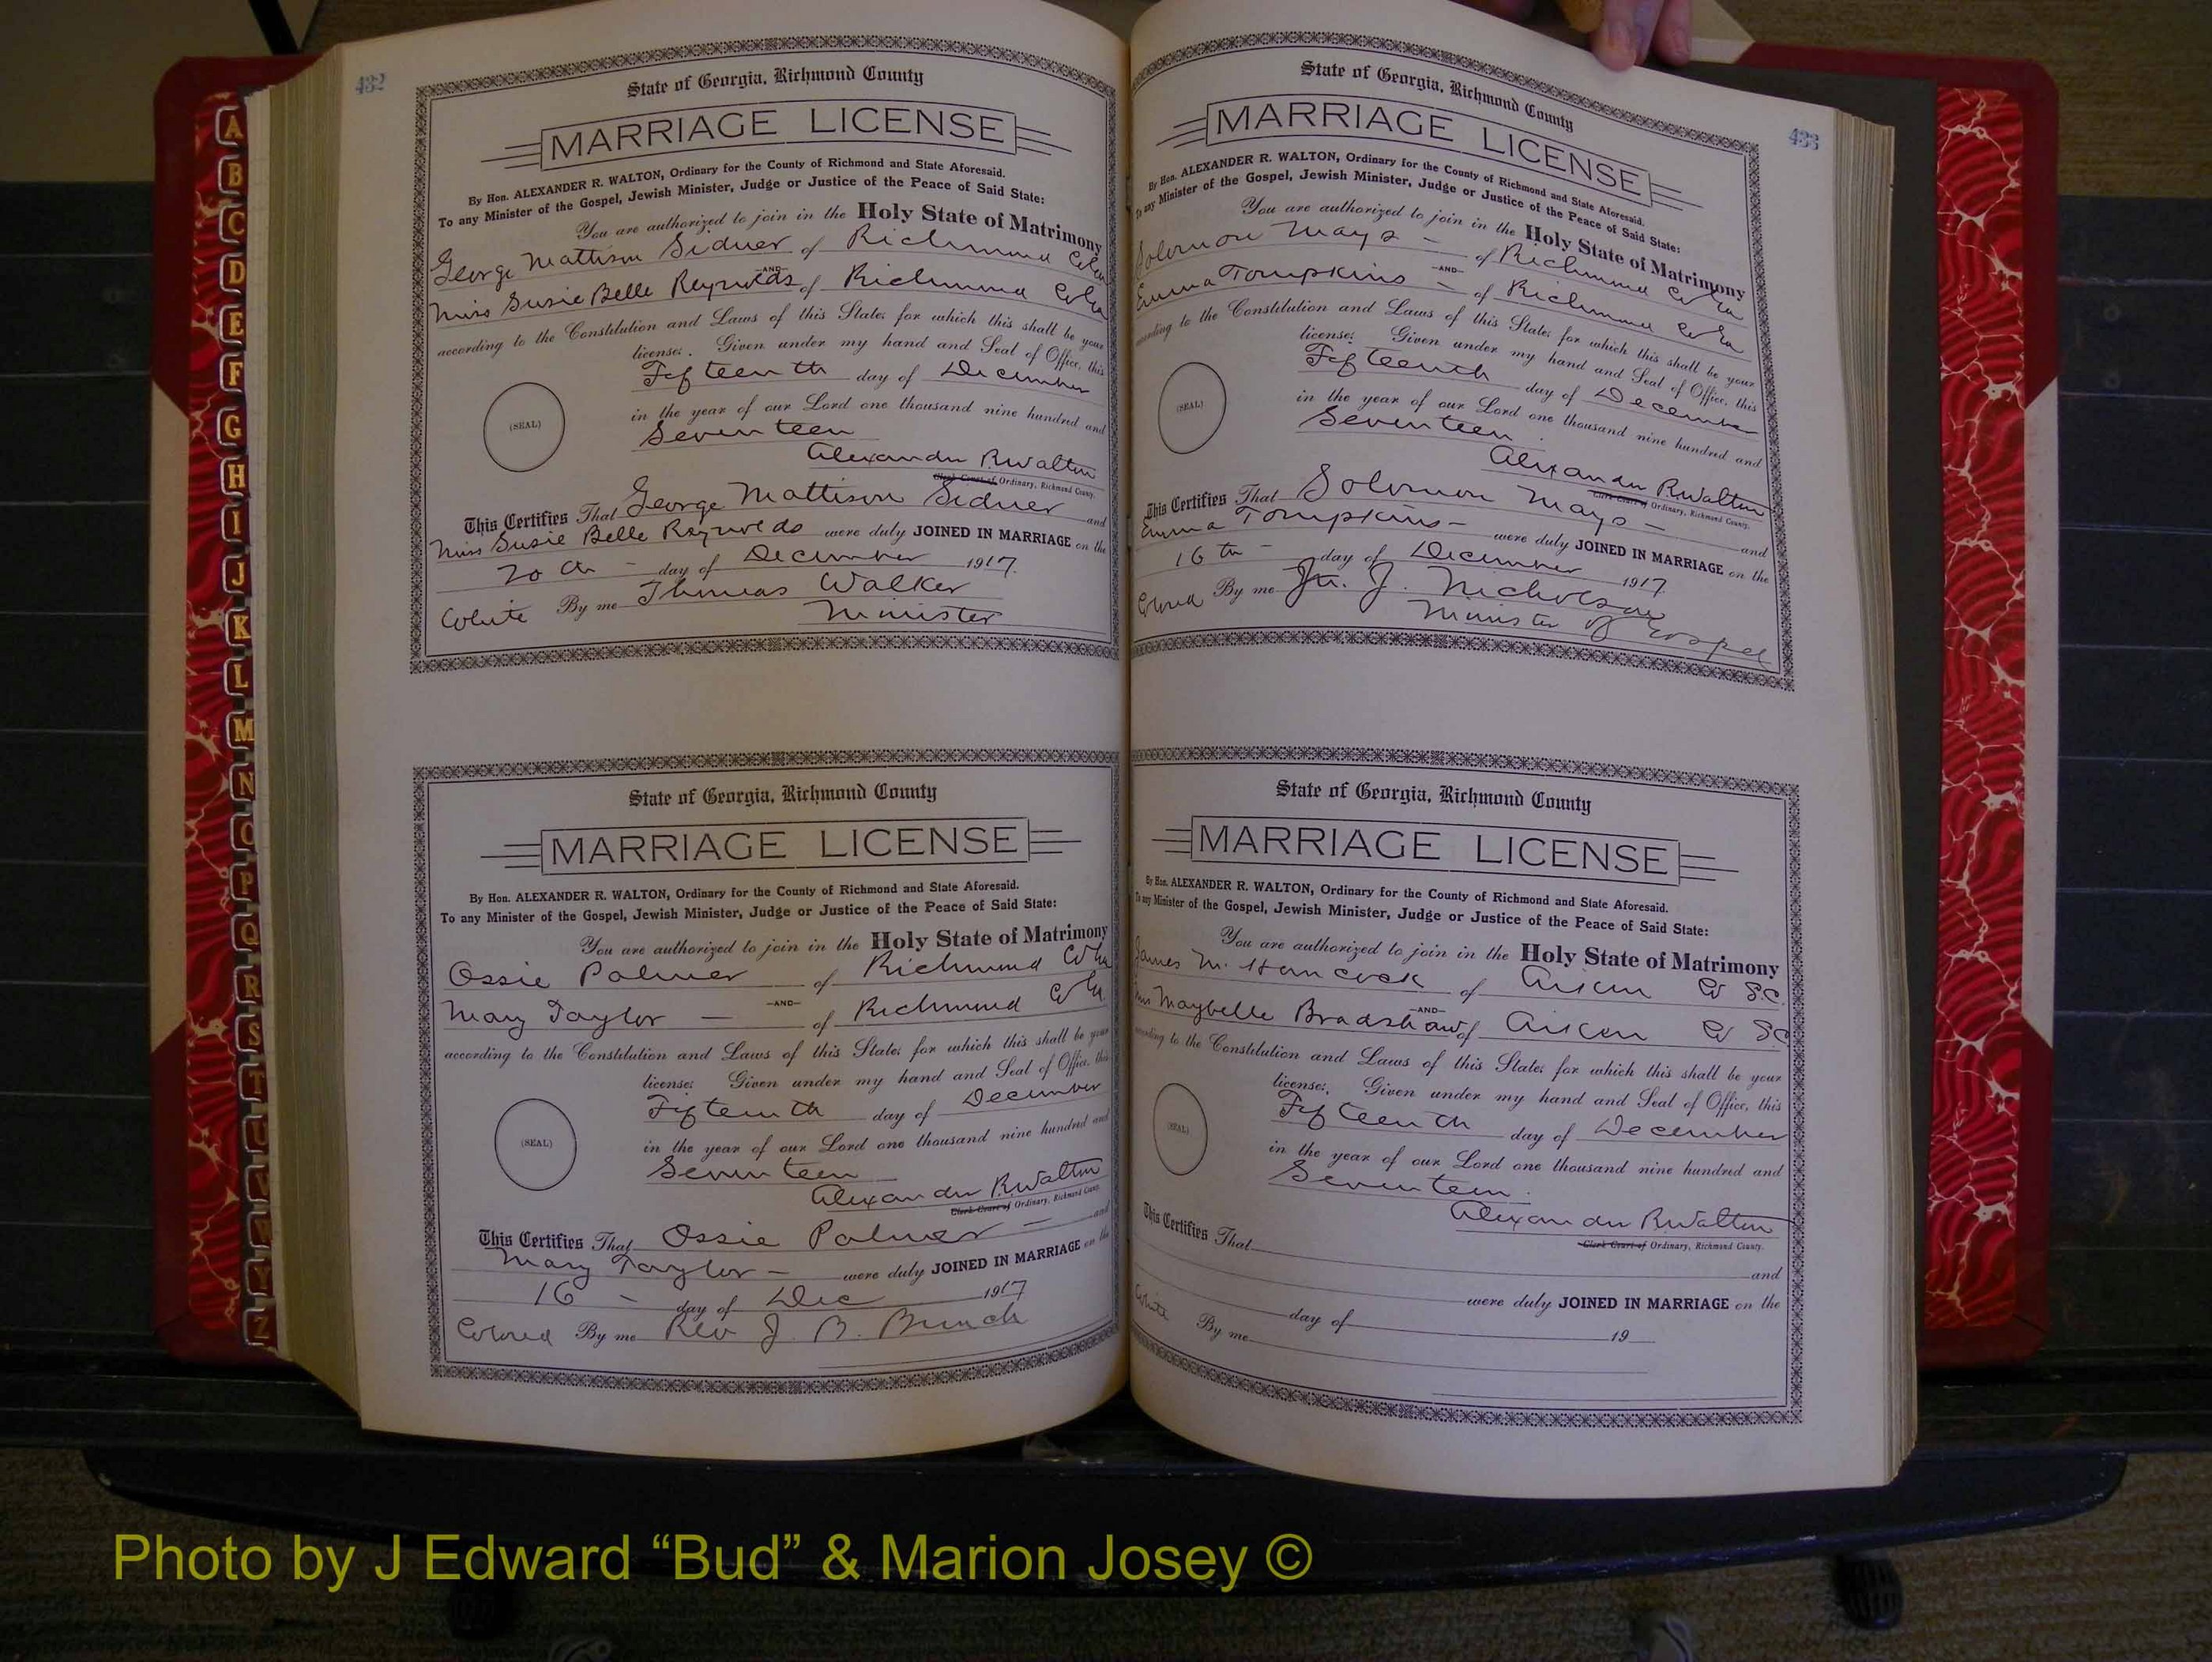 432
State of Georgia, Richmond County
MARRIAGE LICENSE
By Hon. ALEXANDER R. WALTON, Ordinary for the County of Richmond and State Aforesaid.
To any Minister of the Gospel, Jewish Minister, Judge or Justice of the Peace of Said State:
You are authorized to join in the Holy State of Matrimony
George Mattison Sidner of Richmond Co Ga
—AND—
Miss Susie Belle Reynolds of Richmond Co Ga
according to the Constitution and Laws of this State; for which this shall be your
license. Given under my hand and Seal of Office, this
Fifteenth day of December
in the year of our Lord one thousand nine hundred and
(SEAL)
Seventeen
Alexander R Walton
Clerk Court of Ordinary, Richmond County.
This Certifies That George Mattison Sidner and
Miss Susie Belle Reynolds were duly JOINED IN MARRIAGE on the
20th - day of December 1917.
White By me Thomas Walker
Minister
State of Georgia, Richmond County
MARRIAGE LICENSE
By Hon. ALEXANDER R. WALTON, Ordinary for the County of Richmond and State Aforesaid.
To any Minister of the Gospel, Jewish Minister, Judge or Justice of the Peace of Said State:
You are authorized to join in the Holy State of Matrimony
Ossie Palmer of Richmond Co Ga
—AND—
Mary Taylor — of Richmond Co Ga
according to the Constitution and Laws of this State; for which this shall be your
license. Given under my hand and Seal of Office, this
Fifteenth day of December
in the year of our Lord one thousand nine hundred and
(SEAL)
Seventeen
Alexander R Walton
Clerk Court of Ordinary, Richmond County.
This Certifies That Ossie Palmer — and
Mary Taylor — were duly JOINED IN MARRIAGE on the
16 - day of Dec 1917
Colored By me Rev J. B. Bunch
433
State of Georgia, Richmond County
MARRIAGE LICENSE
By Hon. ALEXANDER R. WALTON, Ordinary for the County of Richmond and State Aforesaid.
To any Minister of the Gospel, Jewish Minister, Judge or Justice of the Peace of Said State:
You are authorized to join in the Holy State of Matrimony
Solomon Mays — of Richmond Co Ga
—AND—
Emma Tompkins — of Richmond Co Ga
according to the Constitution and Laws of this State; for which this shall be your
license. Given under my hand and Seal of Office, this
Fifteenth day of December
in the year of our Lord one thousand nine hundred and
(SEAL)
Seventeen.
Alexander R Walton
Clerk Court of Ordinary, Richmond County.
This Certifies That Solomon Mays — and
Emma Tompkins — were duly JOINED IN MARRIAGE on the
16th - day of December 1917
Colored By me J. Nicholson
Minister of Gospel
State of Georgia, Richmond County
MARRIAGE LICENSE
By Hon. ALEXANDER R. WALTON, Ordinary for the County of Richmond and State Aforesaid.
To any Minister of the Gospel, Jewish Minister, Judge or Justice of the Peace of Said State:
You are authorized to join in the Holy State of Matrimony
James M. Hancock of Aiken Co S.C.
—AND—
Miss Maybelle Bradshaw of Aiken Co SC
according to the Constitution and Laws of this State; for which this shall be your
license. Given under my hand and Seal of Office, this
Fifteenth day of December
in the year of our Lord one thousand nine hundred and
(SEAL)
Seventeen.
Alexander R Walton
Clerk Court of Ordinary, Richmond County.
This Certifies That
and
were duly JOINED IN MARRIAGE on the
day of 19
White By me
A
B
C
D
E
F
G
H
I
J
K
L
M
N
O
P
Q
R
S
T
U
V
W
Y
Z
Photo by J Edward “Bud” & Marion Josey ©